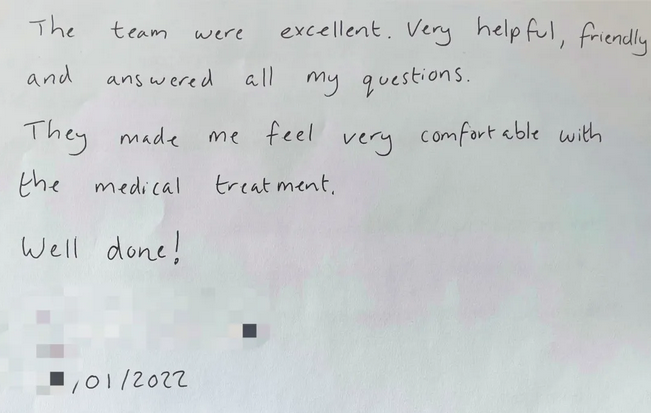 The team were excellent. Very helpful, friendly
and answered all my questions.
They made me feel very comfortable with
the medical treatment.
Well done!
/01/2022